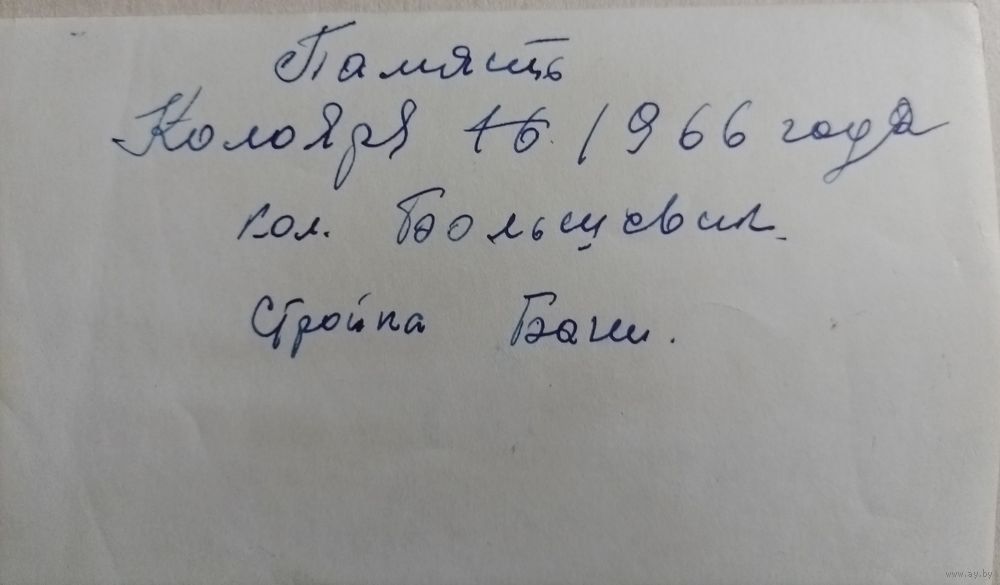 Память
16. 1966 года
кол. Большевик.
Стройка Бани.
www.ay.by